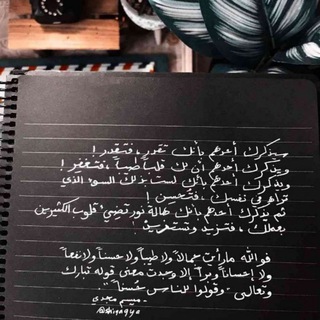 سيذكرك أحدهم بأنك تقدر، فتقدر!
ويذكرك أحدهم أن لك قلباً طيباً، فتغفر!
ويذكرك أحدهم بأنك لست بذلك السوء الذي
تراهُ في نفسك، فتحسن!
ثم يذكرك أحدهم بأنك هالة نور تضيء قلوب الكثيرين
بعملك، فتزيد وتستمر
فوالله ما رأيت جمالاً ولا طيباً ولا حسناً ولا نفعاً
ولا إحساناً وبراً إلا وجدت معنى قوله تبارك
وتعالى "وقولوا للناس حُسناً"